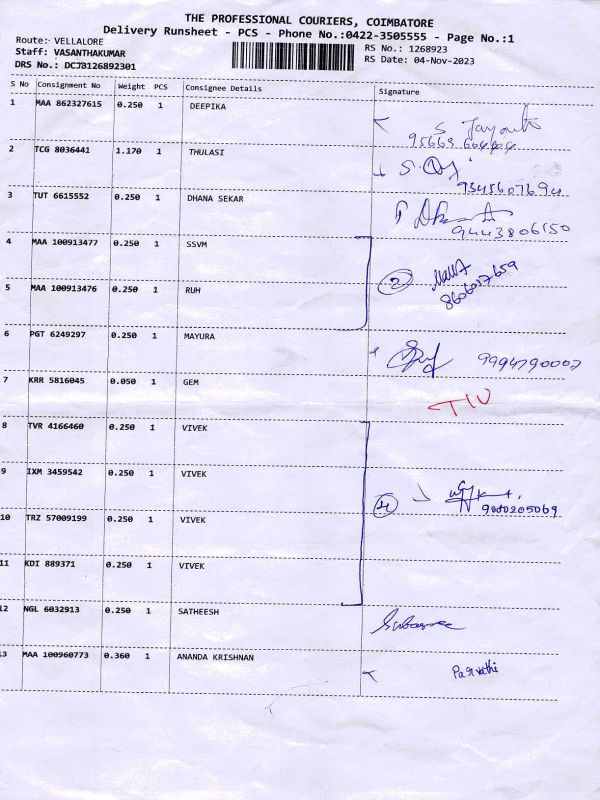 THE PROFESSIONAL COURIERS, COIMBATORE
Delivery Runsheet - PCS - Phone No.:0422-3505555 - Page No.:1
Route:- VELLALORE
RS No.: 1268923
Staff: VASANTHAKUMAR
RS Date: 04-Nov-2023
DRS No.: DCJB126892301
S No Consignment No Weight PCS Consignee Details Signature
1 MAA 862327615 0.250 1 DEEPIKA
2 TCG 8036441 1.170 1 THULASI
9345607694
3 TUT 6615552 0.250 1 DHANA SEKAR
9443806150
4 MAA 100913477 0.250 1 SSVM
2
8606017659
5 MAA 100913476 0.250 1 RUH
6 PGT 6249297 0.250 1 MAYURA
9994790007
7 KRR 5816045 0.050 1 GEM
8 TVR 4166460 0.250 1 VIVEK
9 IXM 3459542 0.250 1 VIVEK
4
10 TRZ 57009199 0.250 1 VIVEK
11 KDI 889371 0.250 1 VIVEK
12 NGL 6032913 0.250 1 SATHEESH
13 MAA 100960773 0.360 1 ANANDA KRISHNAN
Parvathi